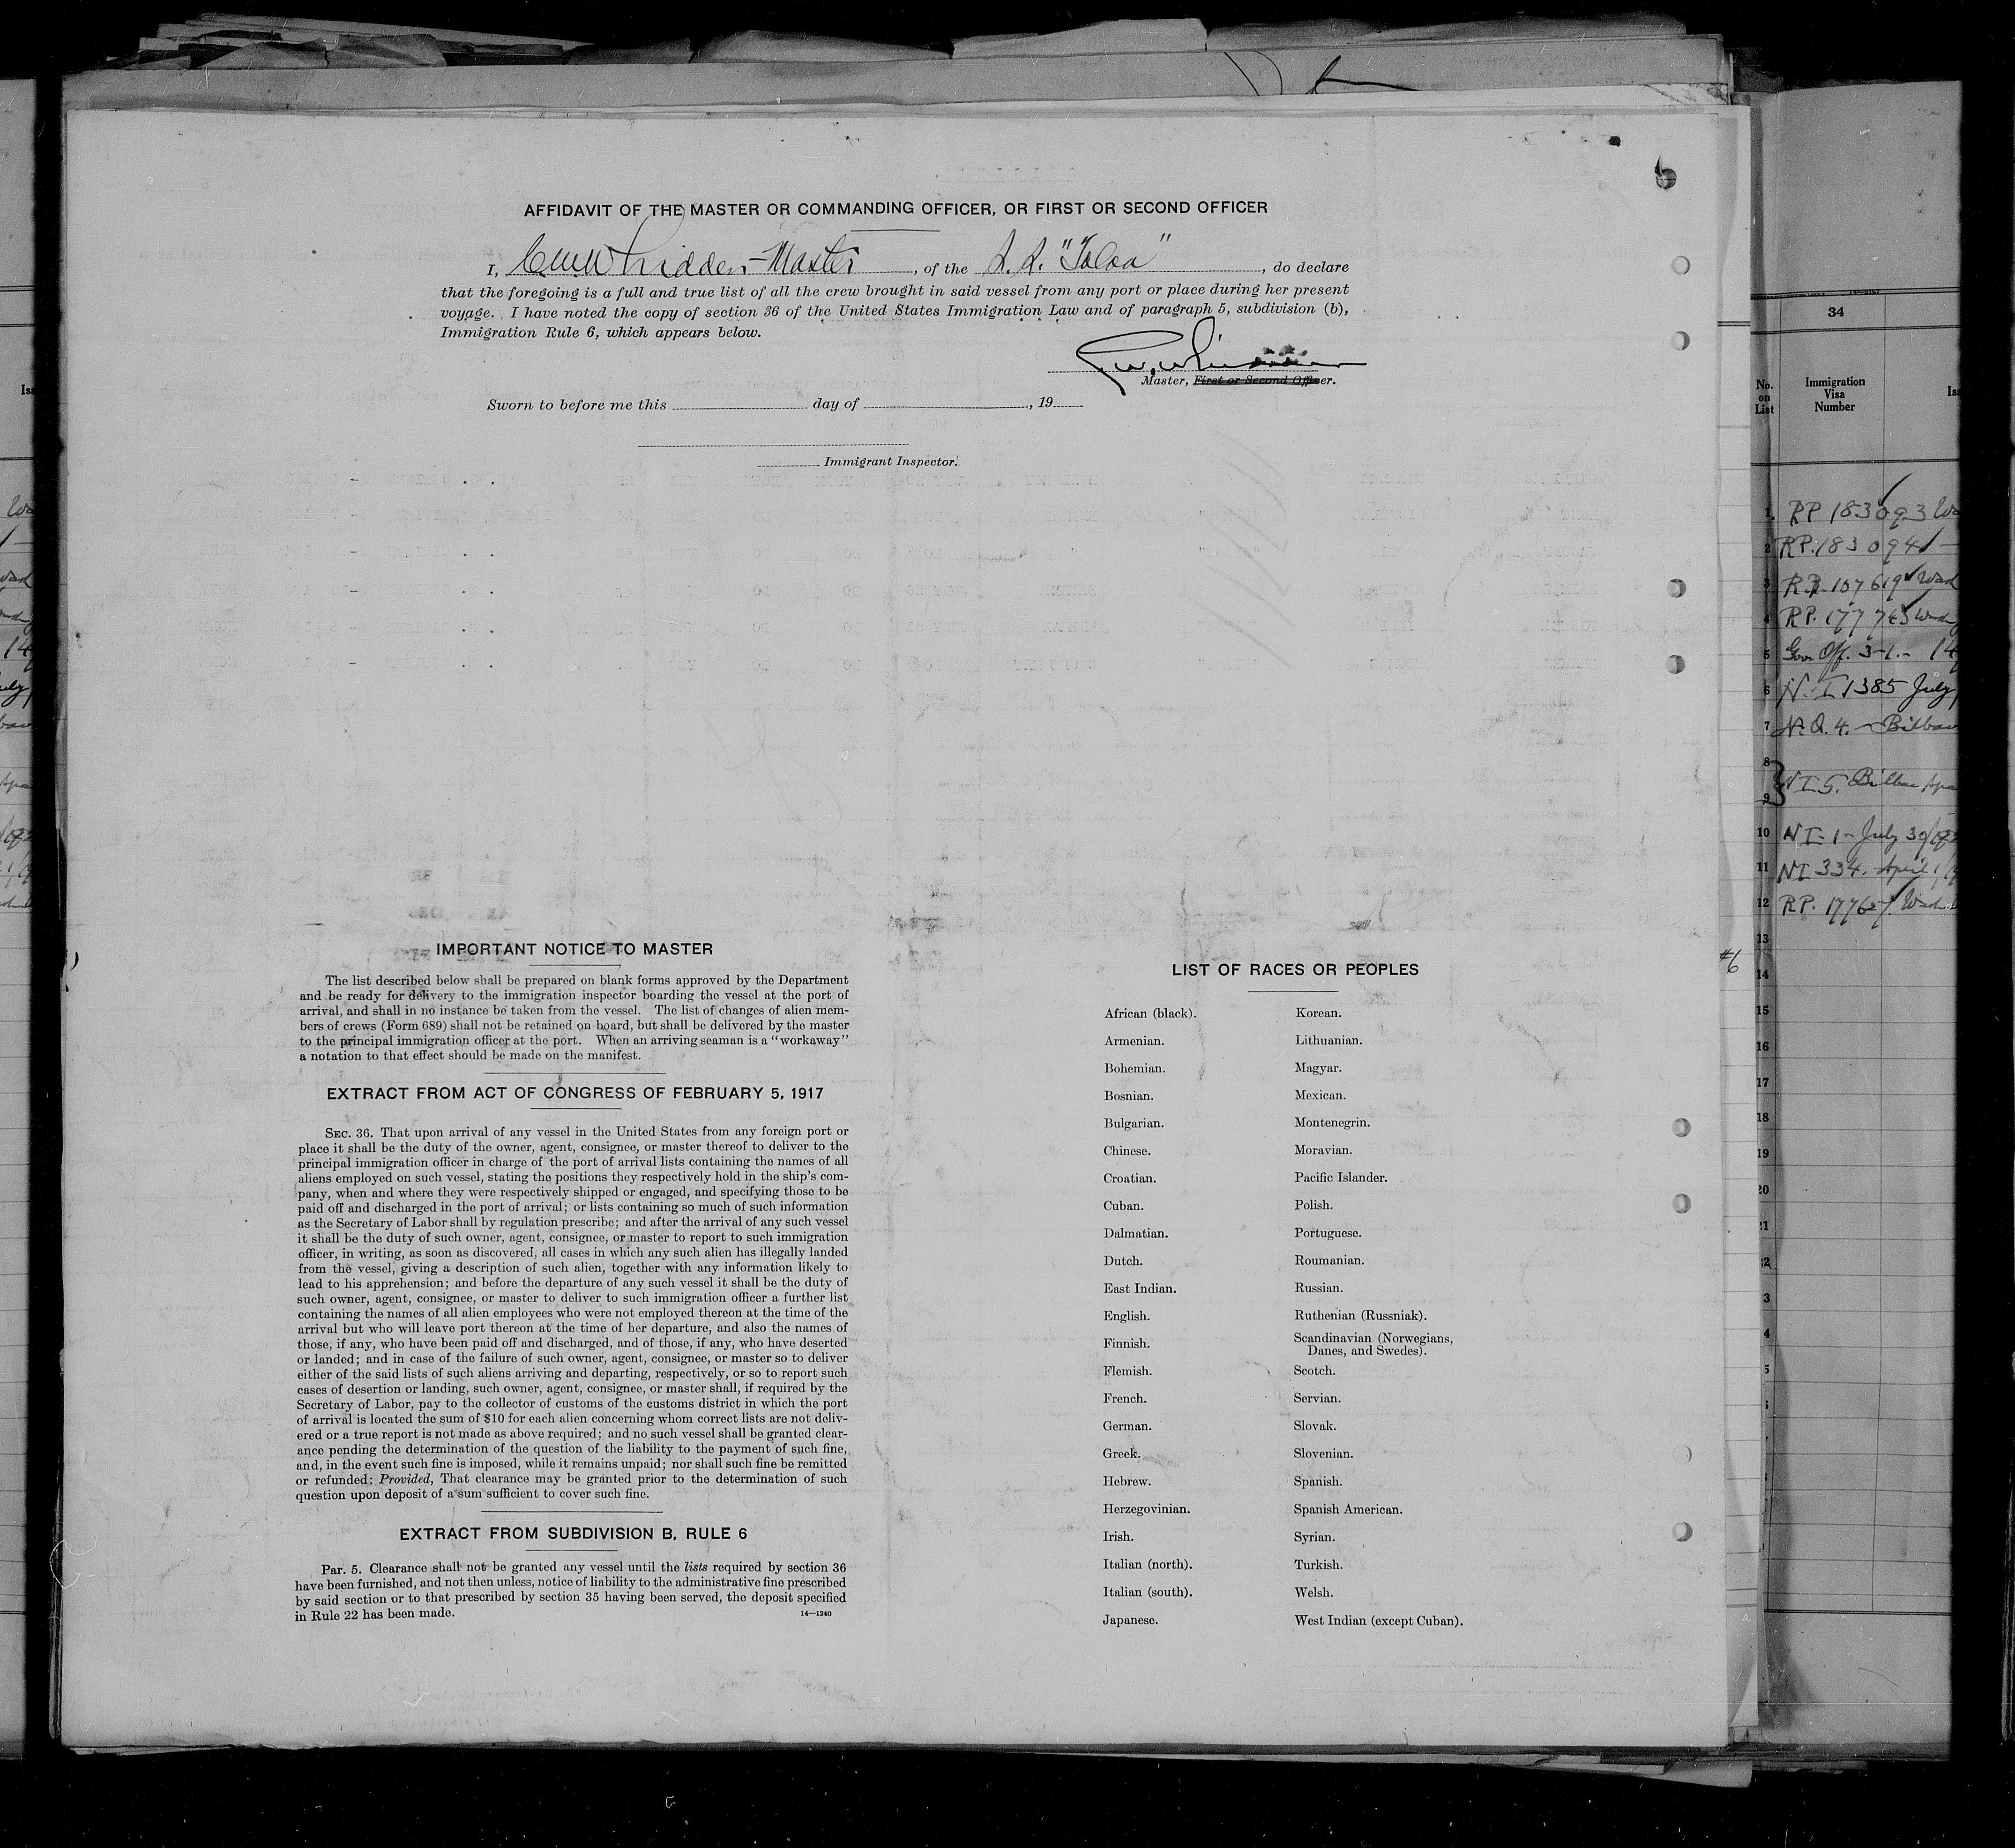 AFFIDAVIT OF THE MASTER OR COMMANDING OFFICER, OR FIRST OR SECOND OFFICER
I, C W Whidden - Master, of the S.S. "Toloa", do declare
that the foregoing is a full and true list of all the crew brought in said vessel from any port or place during her present
voyage. I have noted the copy of section 36 of the United States Immigration Law and of paragraph 5, subdivision (b),
Immigration Rule 6, which appears below.
Master, First or Second Officer.
Sworn to before me this day of , 19
Immigrant Inspector.
IMPORTANT NOTICE TO MASTER
The list described below shall be prepared on blank forms approved by the Department
and be ready for delivery to the immigration inspector boarding the vessel at the port of
arrival, and shall in no instance be taken from the vessel. The list of changes of alien mem-
bers of crews (Form 689) shall not be retained on board, but shall be delivered by the master
to the principal immigration officer at the port. When an arriving seaman is a "workaway"
a notation to that effect should be made on the manifest.
EXTRACT FROM ACT OF CONGRESS OF FEBRUARY 5, 1917
SEC. 36. That upon arrival of any vessel in the United States from any foreign port or
place it shall be the duty of the owner, agent, consignee, or master thereof to deliver to the
principal immigration officer in charge of the port of arrival lists containing the names of all
aliens employed on such vessel, stating the positions they respectively hold in the ship's com-
pany, when and where they were respectively shipped or engaged, and specifying those to be
paid off and discharged in the port of arrival; or lists containing so much of such information
as the Secretary of Labor shall by regulation prescribe; and after the arrival of any such vessel
it shall be the duty of such owner, agent, consignee, or master to report to such immigration
officer, in writing, as soon as discovered, all cases in which any such alien has illegally landed
from the vessel, giving a description of such alien, together with any information likely to
lead to his apprehension; and before the departure of any such vessel it shall be the duty of
such owner, agent, consignee, or master to deliver to such immigration officer a further list
containing the names of all alien employees who were not employed thereon at the time of the
arrival but who will leave port thereon at the time of her departure, and also the names of
those, if any, who have been paid off and discharged, and of those, if any, who have deserted
or landed; and in case of the failure of such owner, agent, consignee, or master so to deliver
either of the said lists of such aliens arriving and departing, respectively, or so to report such
cases of desertion or landing, such owner, agent, consignee, or master shall, if required by the
Secretary of Labor, pay to the collector of customs of the customs district in which the port
of arrival is located the sum of $10 for each alien concerning whom correct lists are not deliv-
ered or a true report is not made as above required; and no such vessel shall be granted clear-
ance pending the determination of the question of the liability to the payment of such fine,
and, in the event such fine is imposed, while it remains unpaid; nor shall such fine be remitted
or refunded: Provided, That clearance may be granted prior to the determination of such
question upon deposit of a sum sufficient to cover such fine.
EXTRACT FROM SUBDIVISION B, RULE 6
Par. 5. Clearance shall not be granted any vessel until the lists required by section 36
have been furnished, and not then unless, notice of liability to the administrative fine prescribed
by said section or to that prescribed by section 35 having been served, the deposit specified
in Rule 22 has been made.
14—1240
LIST OF RACES OR PEOPLES
African (black).
Armenian.
Bohemian.
Bosnian.
Bulgarian.
Chinese.
Croatian.
Cuban.
Dalmatian.
Dutch.
East Indian.
English.
Finnish.
Flemish.
French.
German.
Greek.
Hebrew.
Herzegovinian.
Irish.
Italian (north).
Italian (south).
Japanese.
Korean.
Lithuanian.
Magyar.
Mexican.
Montenegrin.
Moravian.
Pacific Islander.
Polish.
Portuguese.
Roumanian.
Russian.
Ruthenian (Russniak).
Scandinavian (Norwegians,
Danes, and Swedes).
Scotch.
Servian.
Slovak.
Slovenian.
Spanish.
Spanish American.
Syrian.
Turkish.
Welsh.
West Indian (except Cuban).
#6
34
No.
on
List
Immigration
Visa
Number
1 RP 183093
2 RP. 183094
3 RP. 107619 Wash
4 RP. 177743 Wash
5 Gov. Off. 3-1.- 14
6 N. I 1385 July
7 N. Q. 4. - Bilbao
8
9 NI 5. Bilbao
10 NI-1- July 30
11 NI 334. April 1
12 RP. 177627 Wash
13
14
15
16
17
18
19
20